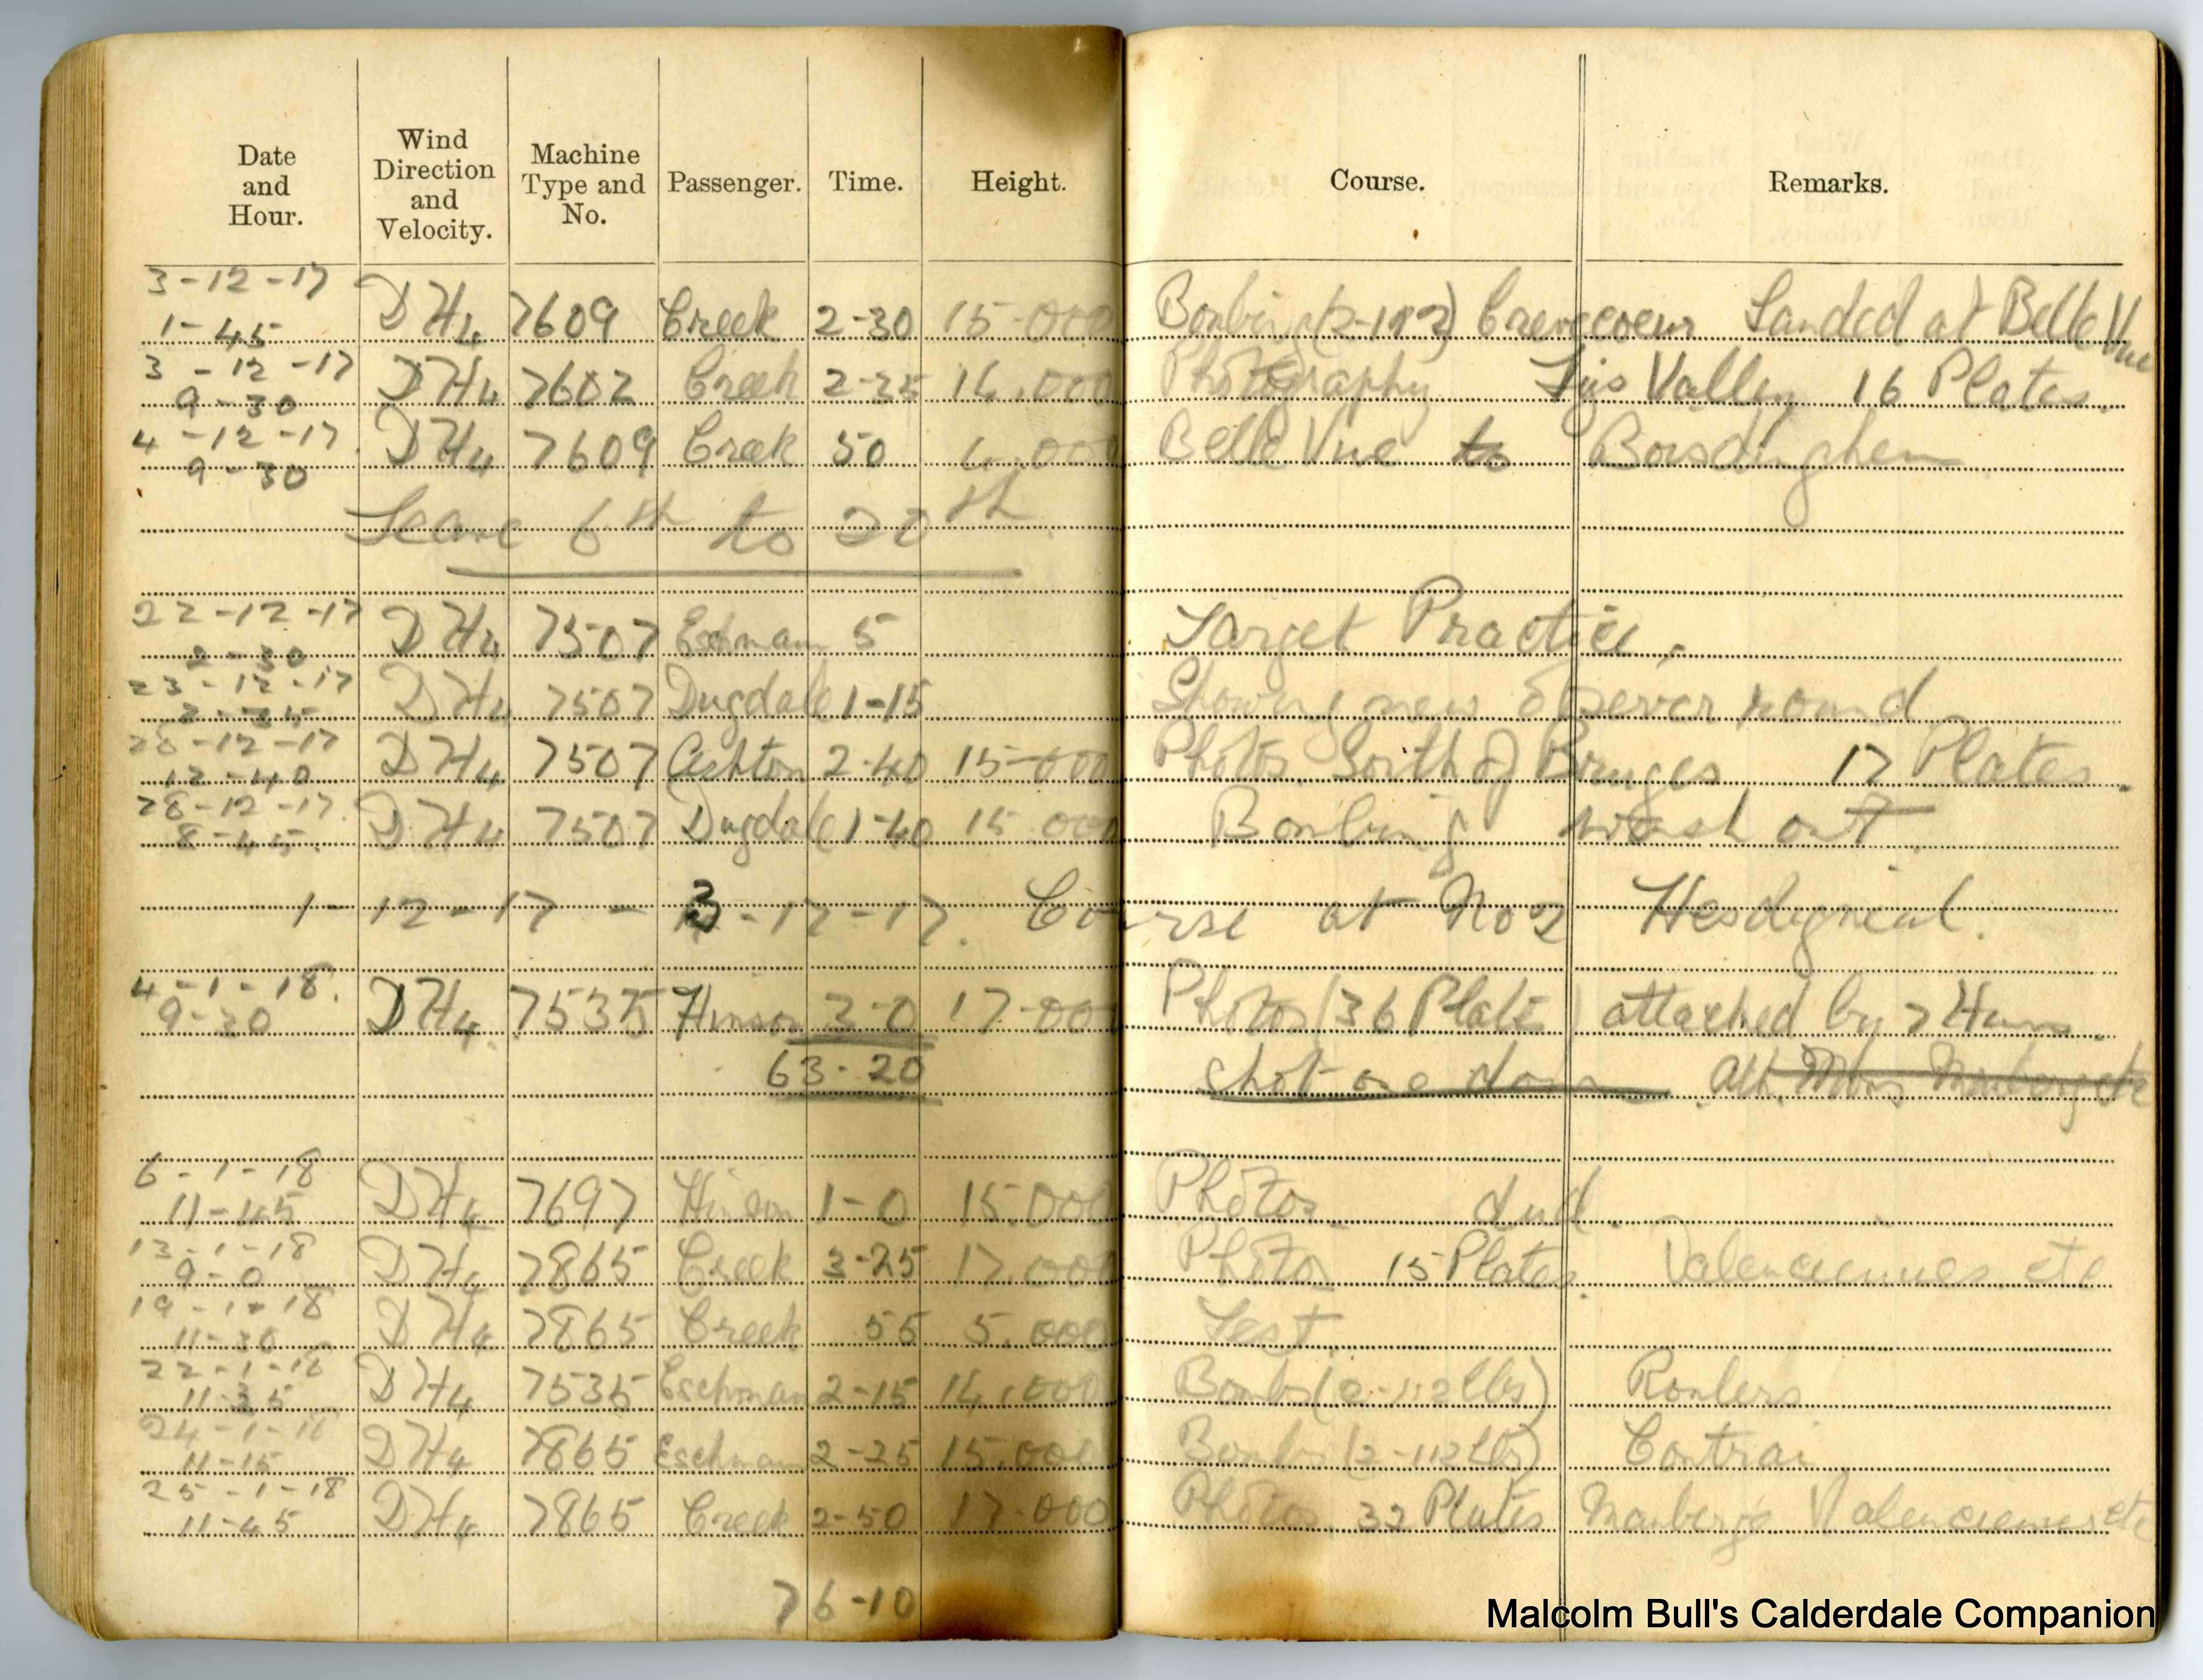 Date and Hour. Wind Direction and Velocity. Machine Type and No. Passenger. Time. Height. Course. Remarks.
3-12-17
1-45 DH4 7609 Creek 2-30 15-000 Crevecoeur Landed at Belle Vue
3-12-17
9-30 DH4 7602 Creek 2-35 16.000 Photography Lys Valley 16 Plates.
4-12-17
9-30 DH4 7609 Creek 50 000 Belle Vue to Boisdinghem
Leave 6th to 20th
22-12-17
2-30 DH4 7507 Eschman 5 Target Practice.
23-12-17
DH4 7507 Dugdale 1-15 Showing new observer round
28-12-17
12-40 DH4 7507 Ashton 2-40 15-000 Photos South of Bruges 17 Plates.
28-12-17.
8-45. DH4 7507 Dugdale 1-40 15.000 Bombing wash out.
1-12-17 - 3-12-17. Course at No 2 Hesdigneul.
4-1-18.
9-30 DH4 7535 Hinson 3-0 17-000 Photos (36 Plates) attacked by 7 Huns.
63-20 shot one down.
6-1-18
11-45 DH4 7697 Hinson 1-0 15.000 Photos dud.
13-1-18
9-0 DH4 7865 Creek 3-25 17.000 Photos 15 Plates. Valenciennes etc
19-1-18
11-30 DH4 7865 Creek 55 5.000 Test
22-1-18
11-35 DH4 7535 Eschman 2-15 14,000 Bombs (2-112 lbs) Roulers
24-1-18
11-15 DH4 7865 Eschman 2-25 15.000 Bombs (2-112 lbs) Courtrai
25-1-18
11-45 DH4 7865 Creek 2-50 17.000 Photos 32 Plates Mauberge Valenciennes etc
76-10
Malcolm Bull's Calderdale Companion